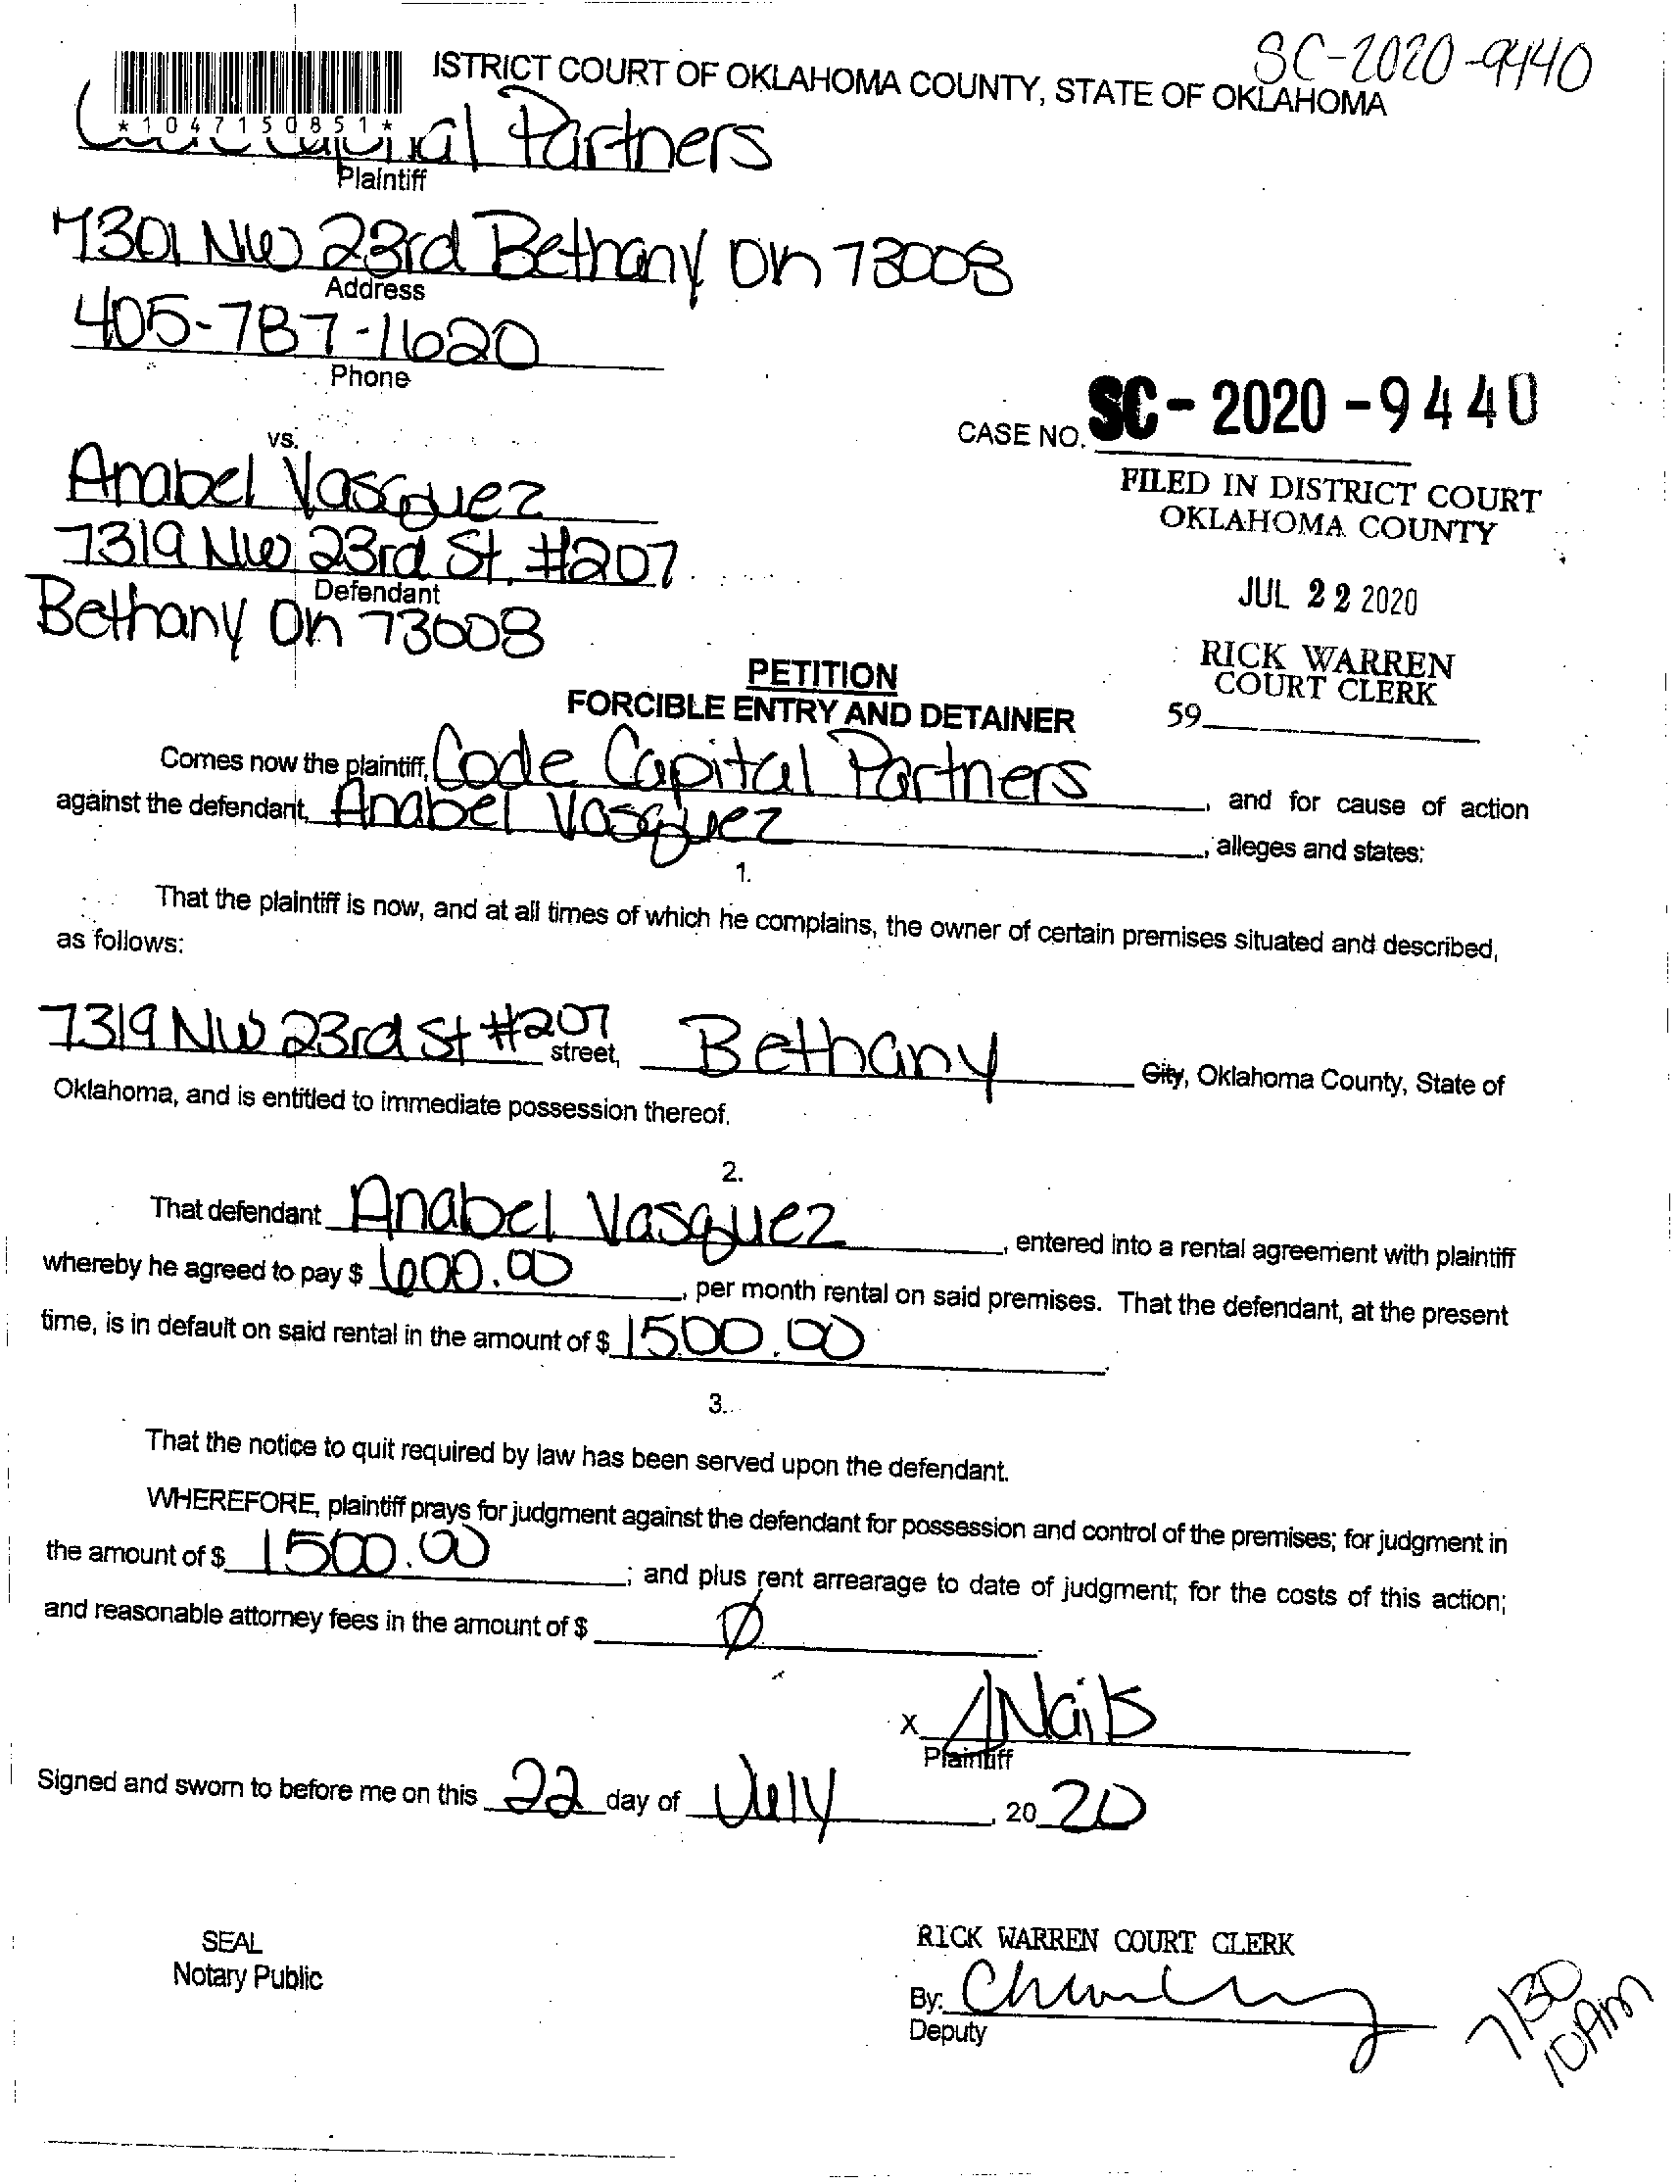 SC-2020-9440
ISTRICT COURT OF OKLAHOMA COUNTY, STATE OF OKLAHOMA
*1047150851*
Partners
Plaintiff
7301 NW 23rd Bethany OK 73008
Address
405-787-1620
Phone
CASE NO. SC-2020-9440
vs.
Anabel Vasquez
FILED IN DISTRICT COURT
OKLAHOMA COUNTY
7319 NW 23rd St. #207
Defendant
JUL 22 2020
Bethany OK 73008
RICK WARREN
COURT CLERK
59
PETITION
FORCIBLE ENTRY AND DETAINER
Comes now the plaintiff, Code Capital Partners
against the defendant, Anabel Vasquez, and for cause of action
, alleges and states:
1.
That the plaintiff is now, and at all times of which he complains, the owner of certain premises situated and described,
as follows:
7319 NW 23rd St #207 street, Bethany City, Oklahoma County, State of
Oklahoma, and is entitled to immediate possession thereof.
2.
That defendant Anabel Vasquez, entered into a rental agreement with plaintiff
whereby he agreed to pay $ 600.00, per month rental on said premises. That the defendant, at the present
time, is in default on said rental in the amount of $ 1500.00.
3.
That the notice to quit required by law has been served upon the defendant.
WHEREFORE, plaintiff prays for judgment against the defendant for possession and control of the premises; for judgment in
the amount of $ 1500.00; and plus rent arrearage to date of judgment; for the costs of this action;
and reasonable attorney fees in the amount of $ Ø
x ANails
Plaintiff
Signed and sworn to before me on this 22 day of July, 20 20
SEAL
Notary Public
RICK WARREN COURT CLERK
By:
Deputy
7/30
10AM